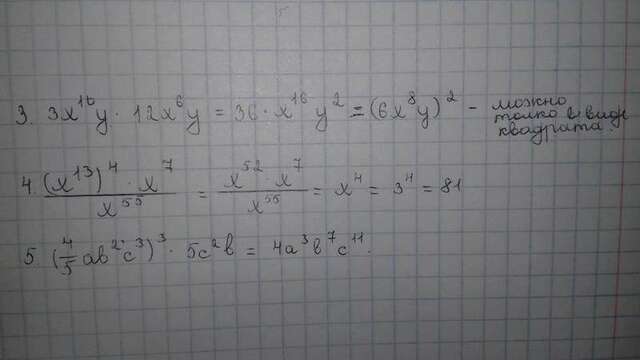 3. 3x¹⁰y · 12x⁶y = 36 · x¹⁶y² = (6x⁸y)² – можно только в виде квадрата.
4. (x¹³)⁴ · x⁷ / x⁵⁵ = x⁵² · x⁷ / x⁵⁵ = x⁴ = 3⁴ = 81
5. (4/5 ab²c³)³ · 5c²b = 4a³b⁷c¹¹.